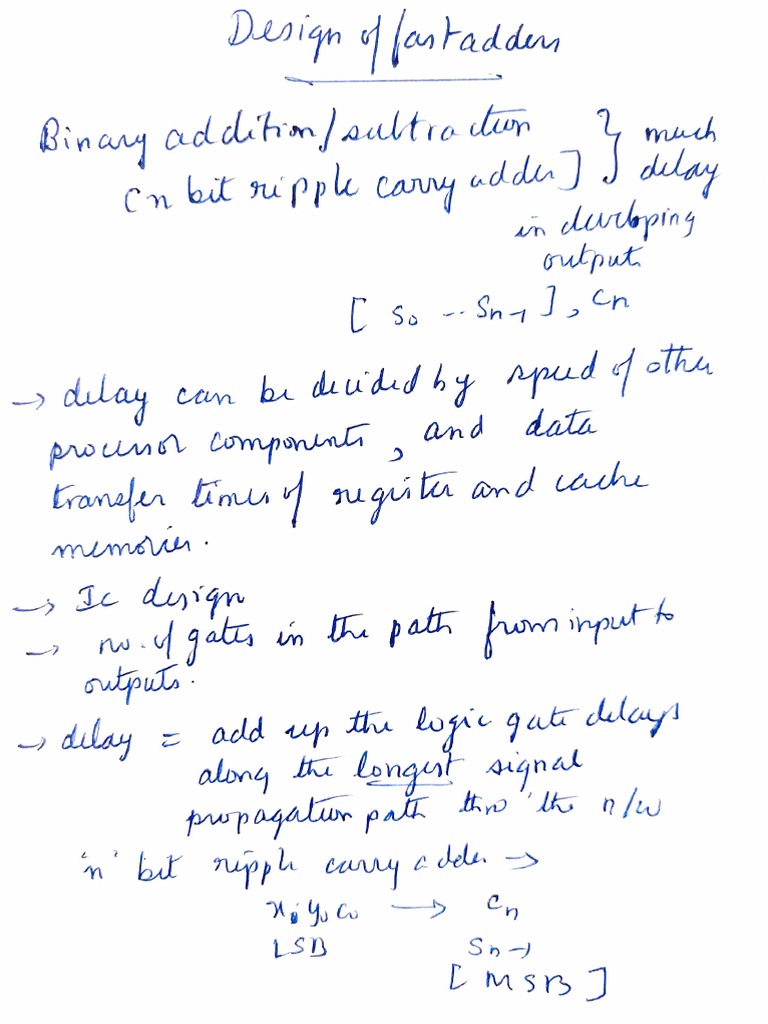 Design of fast adders
Binary addition/subtraction } much
[n bit ripple carry adder] delay
in developing
output
[ S0 -- Sn-1 ], Cn
→ delay can be decided by speed of other
processor components, and data
transfer times of register and cache
memories.
→ Ic design
→ no. of gates in the path from input to
outputs.
→ delay = add up the logic gate delays
along the longest signal
propagation path thro' the n/w
'n' bit ripple carry adder →
x0 y0 c0 → Cn
LSB Sn-1
[MSB]